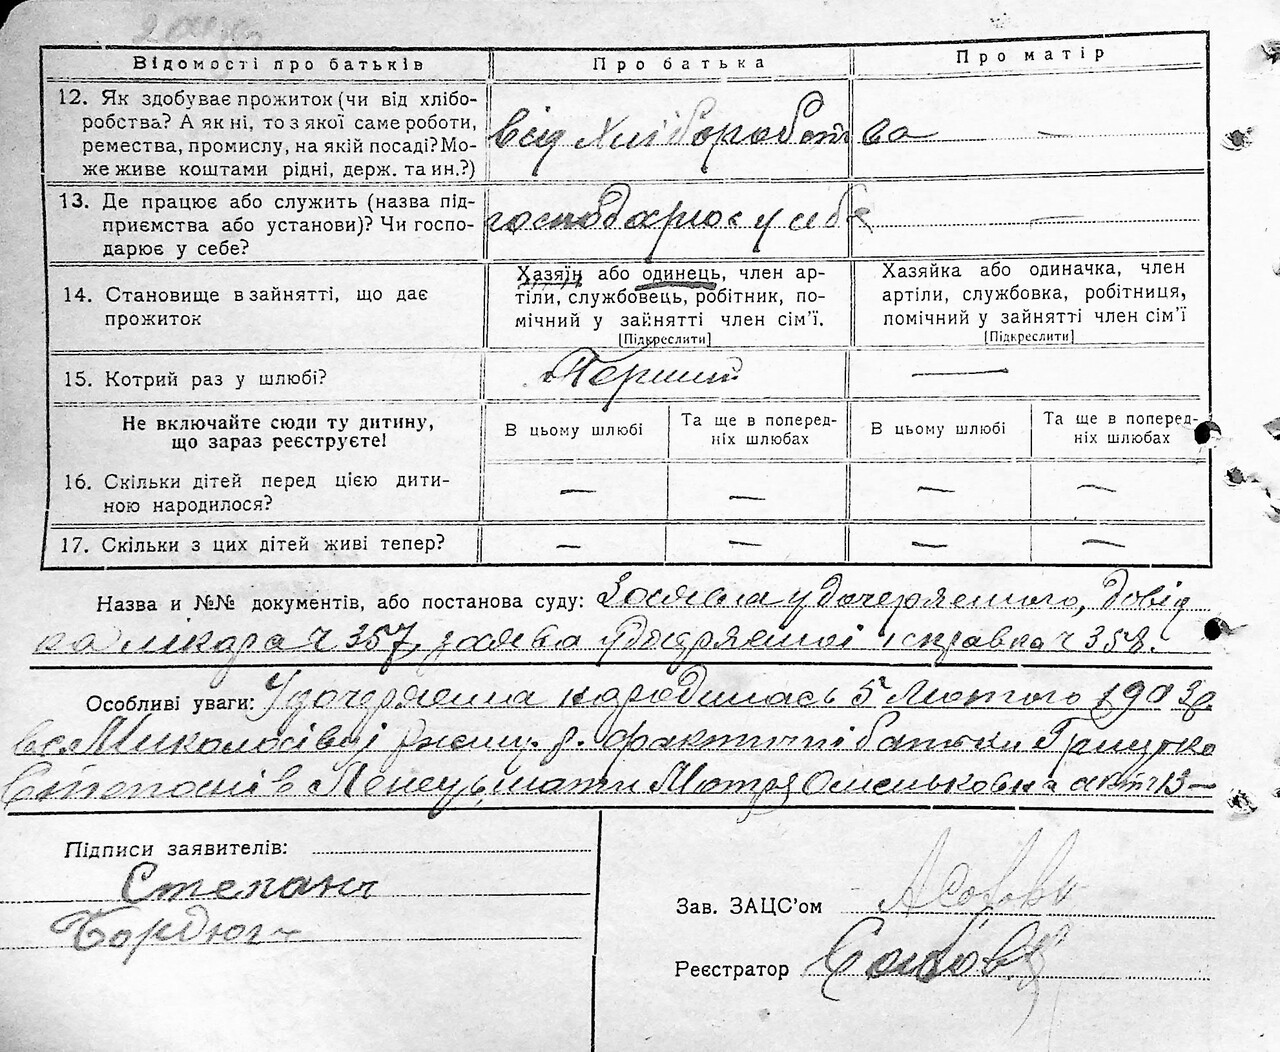 Відомості про батьків
Про батька
Про матір
12. Як здобуває прожиток (чи від хлібо-
робства? А як ні, то з якої саме роботи,
ремества, промислу, на якій посаді? Мо-
же живе коштами рідні, держ. та ин.?)
від хліборобства
—
13. Де працює або служить (назва під-
приємства або установи)? Чи госпо-
дарює у себе?
господарює у себе
—
14. Становище в зайнятті, що дає
прожиток
Хазяїн або одинець, член ар-
тіли, службовець, робітник, по-
мічний у зайнятті член сім’ї.
[Підкреслити]
Хазяйка або одиначка, член
артіли, службовка, робітниця,
помічний у зайнятті член сім’ї
[Підкреслити]
15. Котрий раз у шлюбі?
Перший
—
Не включайте сюди ту дитину,
що зараз реєструєте!
В цьому шлюбі
Та ще в поперед-
ніх шлюбах
В цьому шлюбі
Та ще в поперед-
ніх шлюбах
16. Скільки дітей перед цією дити-
ною народилося?
— — — —
17. Скільки з цих дітей живі тепер?
— — — —
Назва и №№ документів, або постанова суду: Заява удочеряемого, довід
ка лікаря ч 357, заява і справка ч 358.
Особливі уваги: Удочерянна народилась 5 Лютого 193
в с. Миколаівці фактичні батьки Грицько
Степанів мати Мотря акт 13—
Підписи заявителів:
Степань
Бордюгь
Зав. ЗАЦС’ом
Реєстратор